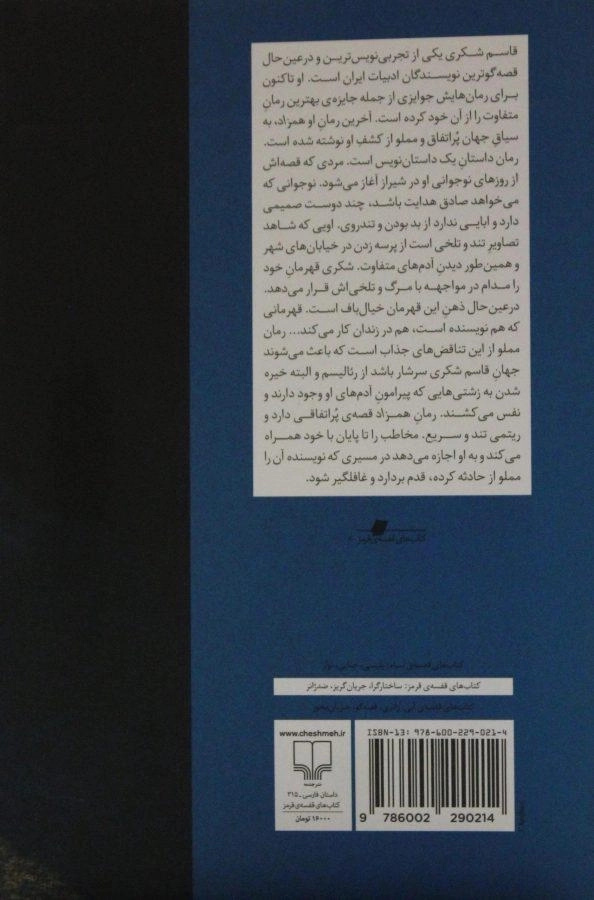 قاسم شکری یکی از تجربی‌نویس‌ترین و درعین‌حال
قصه‌گوترین نویسندگان ادبیات ایران است. او تاکنون
برای رمان‌هایش جوایزی از جمله جایزه‌ی بهترین رمانِ
متفاوت را از آن خود کرده است. آخرین رمانِ او همزاد، به
سیاقِ جهان پُراتفاق و مملو از کشفِ او نوشته شده است.
رمان داستانِ یک داستان‌نویس است. مردی که قصه‌اش
از روزهای نوجوانی او در شیراز آغاز می‌شود. نوجوانی که
می‌خواهد صادق هدایت باشد، چند دوست صمیمی
دارد و ابایی ندارد از بد بودن و تندروی. اویی که شاهد
تصاویرِ تند و تلخی است از پرسه زدن در خیابان‌های شهر
و همین‌طور دیدنِ آدم‌های متفاوت. شکری قهرمانِ خود
را مدام در مواجهه با مرگ و تلخی‌اش قرار می‌دهد.
درعین‌حال ذهنِ این قهرمان خیال‌باف است. قهرمانی
که هم نویسنده است، هم در زندان کار می‌کند... رمان
مملو از این تناقض‌های جذاب است که باعث می‌شوند
جهانِ قاسم شکری سرشار باشد از رئالیسم و البته خیره
شدن به زشتی‌هایی که پیرامونِ آدم‌های او وجود دارند و
نفس می‌کشند. رمانِ همزاد قصه‌ی پُراتفاقی دارد و
ریتمی تند و سریع. مخاطب را تا پایان با خود همراه
می‌کند و به او اجازه می‌دهد در مسیری که نویسنده آن را
مملو از حادثه کرده، قدم بردارد و غافلگیر شود.
کتاب‌های قفسه‌ی قرمز
کتاب‌های قفسه‌ی سیاه: پلیسی، جنایی، نوآر
کتاب‌های قفسه‌ی قرمز: ساختارگرا، جریان‌گریز، ضدژانر
کتاب‌های قفسه‌ی آبی: ژانری، قصه‌گو، جریان‌محور
www.cheshmeh.ir
نشرچشمه
داستان فارسی ـ ۳۱۵
کتاب‌های قفسه‌ی قرمز
۱۶۰۰۰ تومان
ISBN-13: 978-600-229-021-4
9 786002 290214